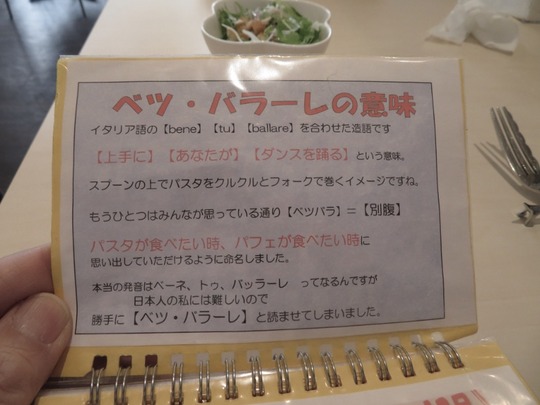 ベツ・バラーレの意味
イタリア語の【bene】【tu】【ballare】を合わせた造語です
【上手に】【あなたが】【ダンスを踊る】という意味。
スプーンの上でパスタをクルクルとフォークで巻くイメージですね。
もうひとつはみんなが思っている通り【ベツバラ】＝【別腹】
パスタが食べたい時、パフェが食べたい時に
思い出していただけるように命名しました。
本当の発音はベーネ、トゥ、バッラーレ　ってなるんですが
日本人の私には難しいので
勝手に【ベツ・バラーレ】と読ませてしまいました。